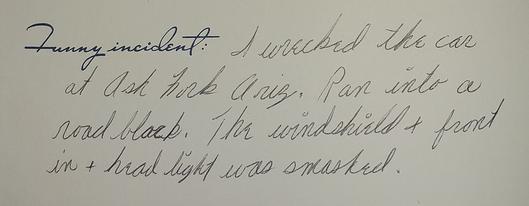 Funny incident: I wrecked the car
at Ash Fork Ariz. Ran into a
road block. The windshield + front
in + head light was smashed.